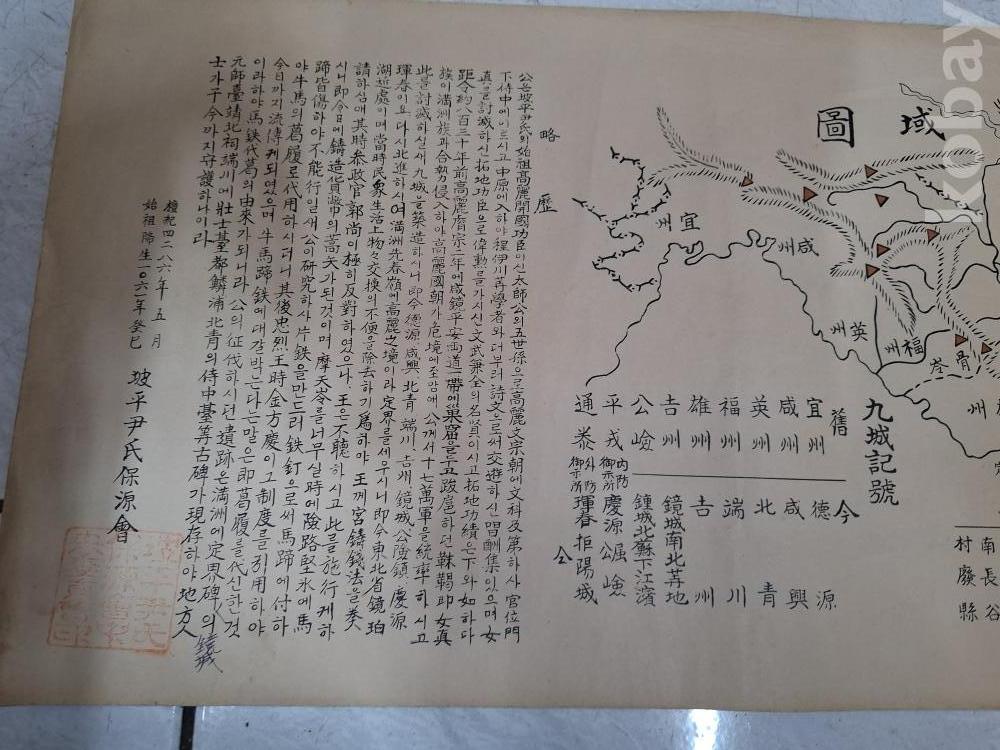 kobay
域圖
宜州
咸州
英州
福州
骨岺
州
九城記號
舊
宜州
咸州
英州
福州
雄州
吉州
公嶮
平戎
通泰
今
德源
咸興
北青
端川
吉州
鏡城南北其地
鍾城北蘇下江濱
內防禦所 慶源 公嶮
外防禦所 琿春 拒陽城
南長谷
村廢縣
略歷
公는坡平尹氏의始祖高麗開國功臣이신太師公의五世孫으로高麗文宗朝에文科及第하사官位門
下侍中에이르시고中原에가하야程伊川等學者와더부러詩文으로써交遊하신唱酬集이있으며女
眞을討滅하신拓地功臣으로偉勳을가지신文武兼全의名賢이시고拓地功績은下와如하다
距今約八百三十年前高麗睿宗二年에咸鏡平安兩道一帶에巢窟을두고跋扈하던靺鞨即女眞
族이滿洲族과合勢侵入하야高麗國朝가危境에至함애公께서十七萬軍을統率하시고
此를討滅하실새九城을築造하시니即今德源咸興北青端川吉州鏡城公險鎮慶源
琿春이고다시北進하시여滿洲先春嶺에高麗之境이라定界를세우시니即今東北省鏡珀
湖近處이며當時民衆生活上物々交換의不便을除去하기爲하야王께宮鑄錢法을奏
請하심애其時泰政官郭尚이極히反對하였으나王은不聽하시고此를施行케하
시니即今日에鑄造貨幣의高矢가된것이며摩天岺를너무실時에險路堅氷에馬
蹄皆傷하야不能行일새公이研究하사片鉄을만드러鉄釘으로써馬蹄에付하
야牛馬의葛履로代用하시더니其後忠烈王時金方慶이그制度를引用하야
今日까지流傳케되였으며牛馬蹄鉄에대갈박는다는말은即葛履를代신한것
이라하야馬鉄代葛의由來가되니라公의征伐하시던遺跡은滿洲에定界碑鏡城의
元師臺靖北祠端川에壯士臺都鱗浦北青의侍中臺等古碑가現存하야地方人
士가于今까지守護하나이라
檀紀四二八六年五月
始祖降生一〇六一年癸巳
坡平尹氏保源會